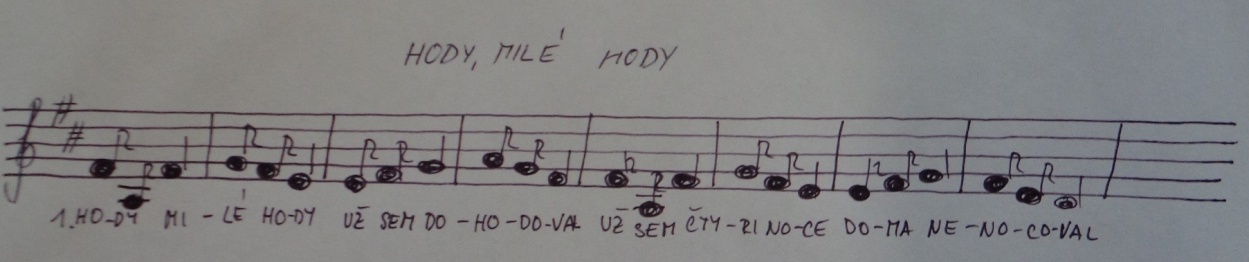 HODY, MILÉ HODY
1. HO-DY MI-LÉ HO-DY UŽ SEM DO-HO-DO-VAL UŽ SEM ČTY-RI NO-CE DO-MA NE-NO-CO-VAL